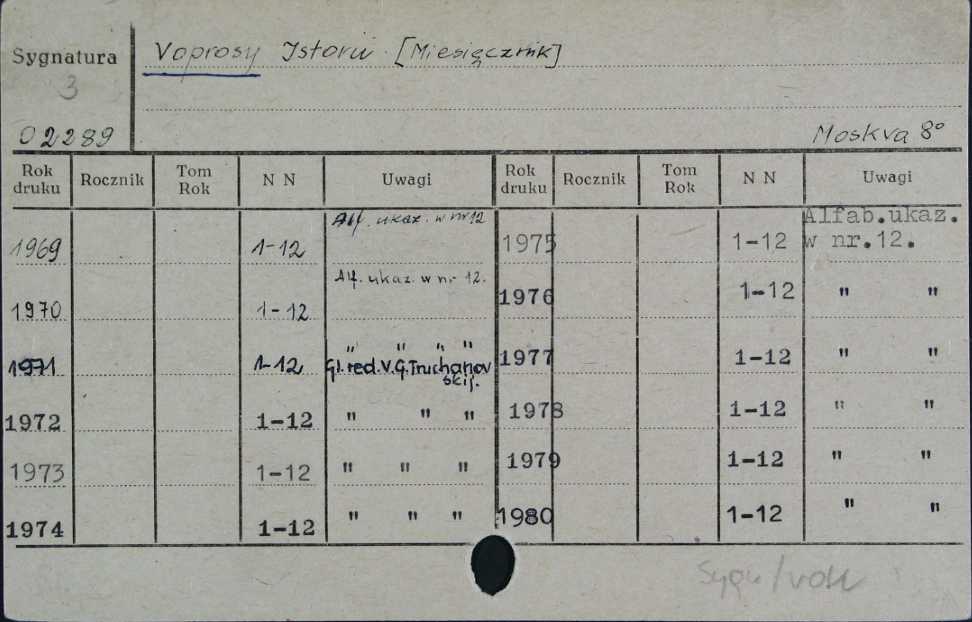 Sygnatura
3
02289
Voprosy Istorii. [Miesięcznik]
Moskva 8°
Rok druku Rocznik Tom Rok N N Uwagi Rok druku Rocznik Tom Rok N N Uwagi
1969 1-12 Alf. ukaz. w nr 12
1970 1-12 Alf. ukaz. w nr 12.
1971 1-12 " " " "
Gł. red. V.G. Truchanovskij.
1972 1-12 " " "
1973 1-12 " " "
1974 1-12 " " "
1975 1-12 Alfab.ukaz.
w nr.12.
1976 1-12 " "
1977 1-12 " "
1978 1-12 " "
1979 1-12 " "
1980 1-12 " "